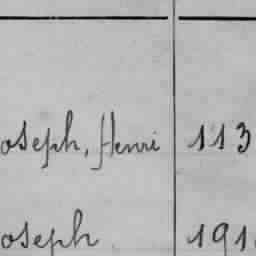 oseph, Henri 113
oseph 191